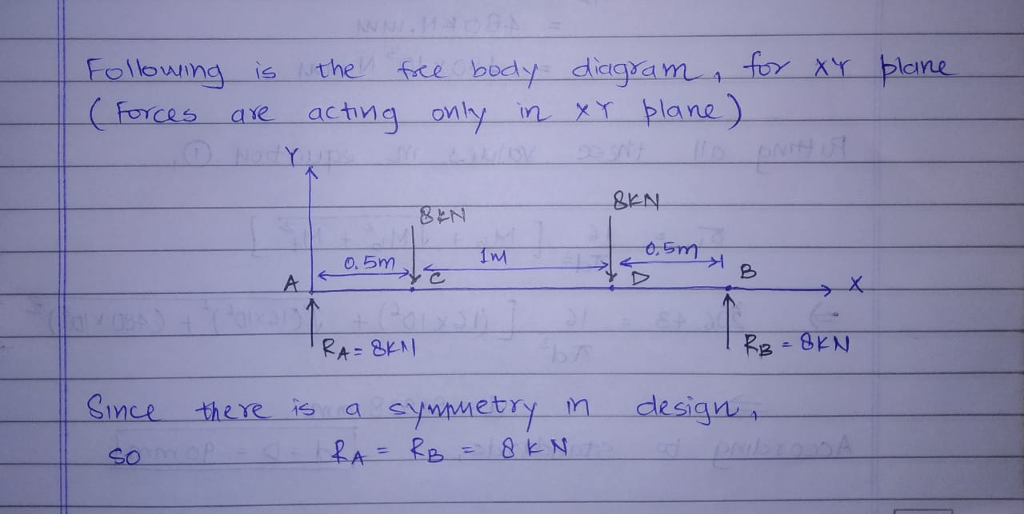 Following is the free body diagram, for XY plane
(Forces are acting only in XY plane)
Y
8KN
8KN
0.5m
1m
0.5m
A
C
D
B
X
RA = 8KN
RB = 8KN
Since there is a symmetry in design,
so RA = RB = 8 KN